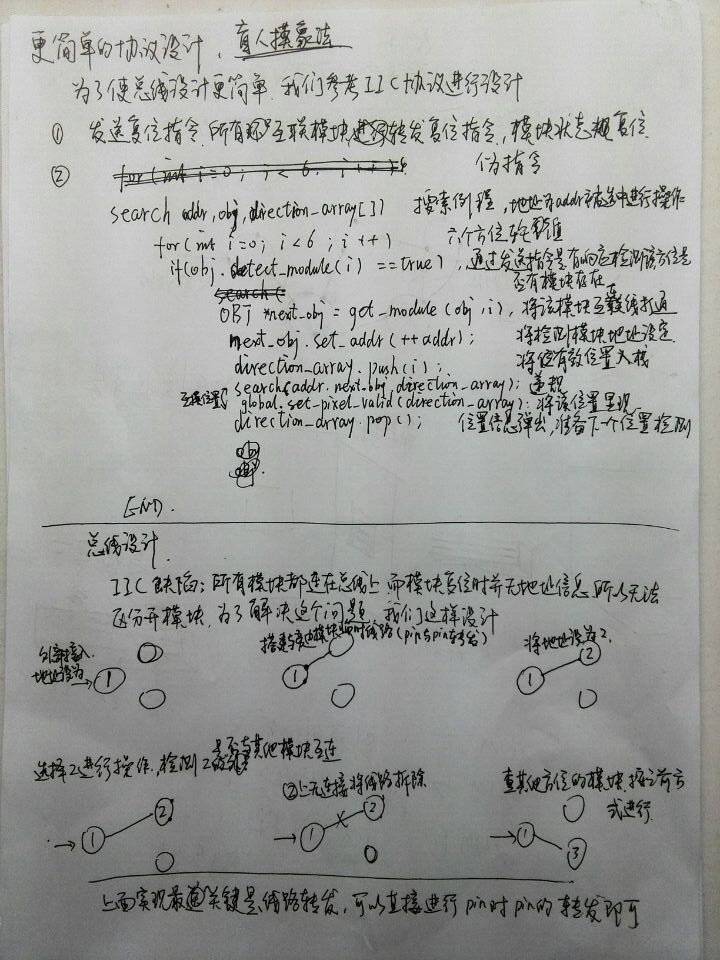 更简单的协议设计,盲人摸象法
为了使总线设计更简单,我们参考IIC协议进行设计
① 发送复位指令,所有互联模块进行转发复位指令,模块状态复位
② for(int i=0; i<6, i++){ 伪指令
search addr,obj,direction_array[]) 搜索例程,地址为addr进行操作
for(int i=0; i<6; i++) 六个方位
if(obj.detect_module(i)==true), 通过发送指令是有响应检测该方位是
否有模块存在
search(
OBJ *next_obj = get_module(obj,i), 将该模块互联线打通
next_obj.set_addr(++addr); 将检测模块地址设定
direction_array.push(i); 将有效位置入栈
互换位置 search(addr.next_obj,direction_array); 递规
global.set_pixel_valid(direction_array); 将该位置呈现
direction_array.pop(); 位置信息弹出,准备下一个位置检测
END.
总线设计
IIC缺陷:所有模块都连在总线上,而模块复位时并无地址信息,所以无法
区分开模块,为了解决这个问题,我们这样设计
地址设为 1
搭建与模块临时线路(pin与pin转发) 1
将地址设为2. 1 2
选择2进行操作,检测2是否与其他模块互连
1 2
②上无连接将线路拆除
1 2
查其他方位的模块,按之前方
式进行
1 3
上面实现最关键是线路转发,可以直接进行pin对pin的转发即可